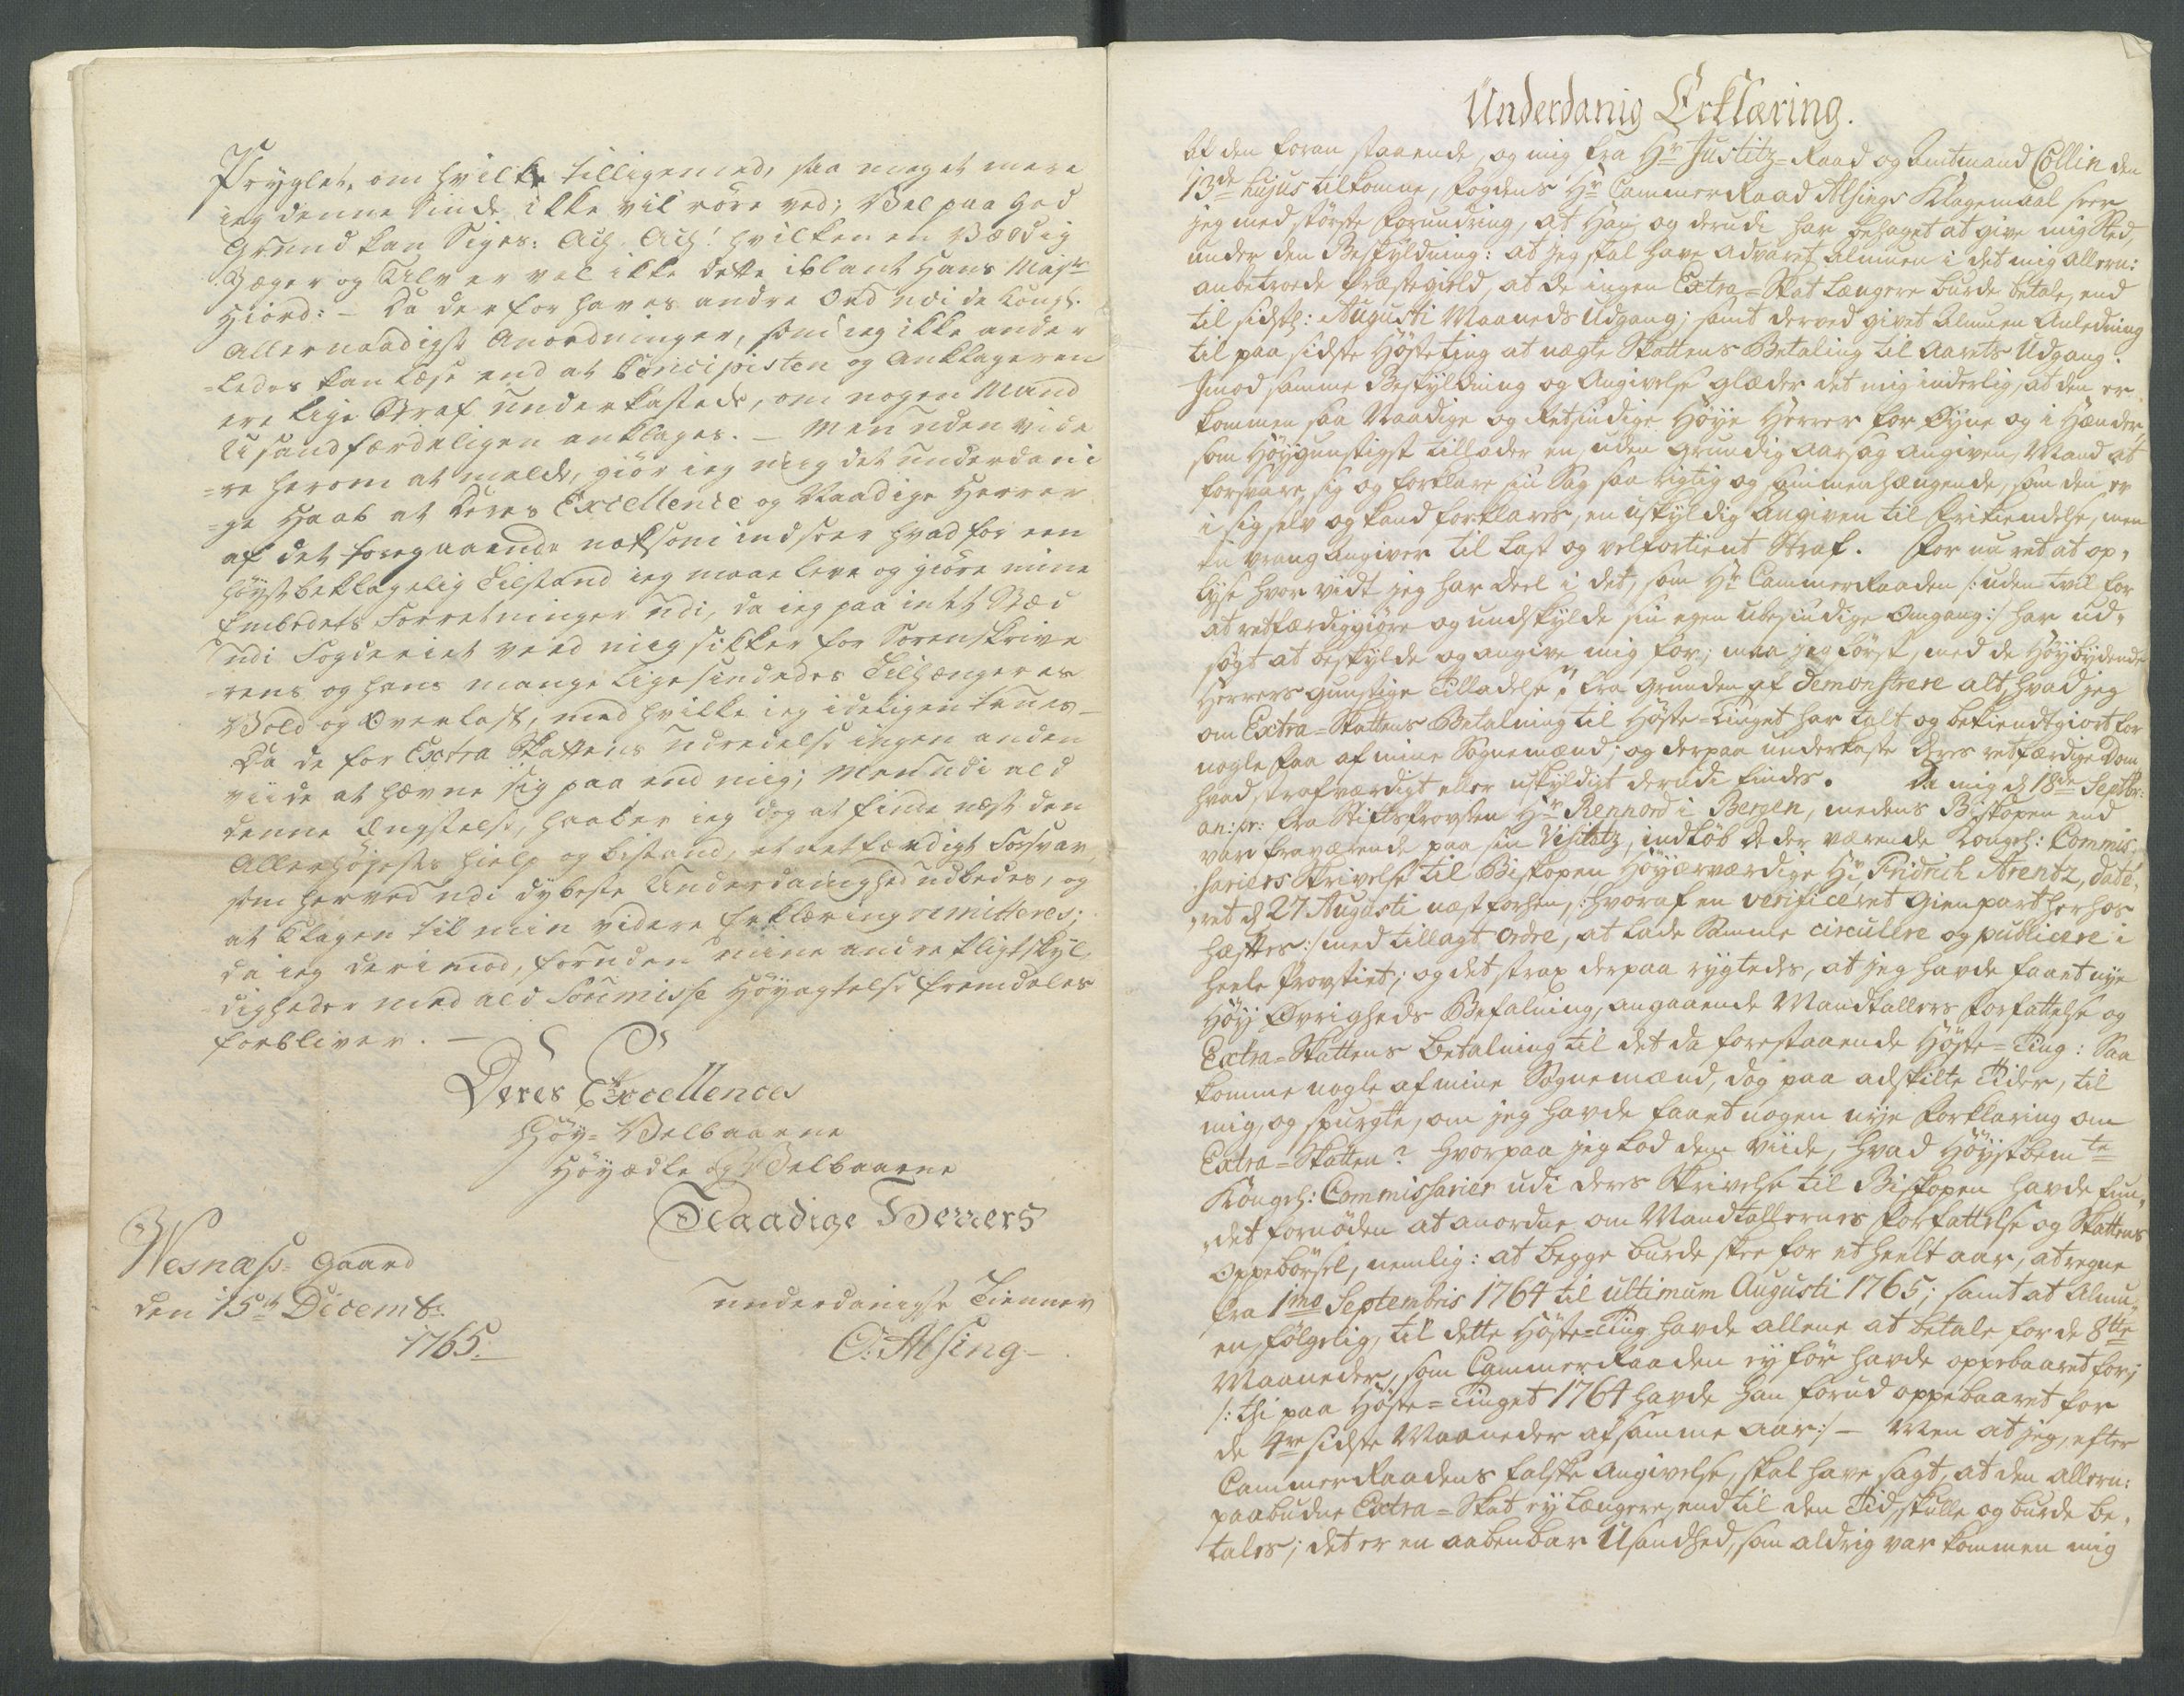 Prÿglet, om hvilke tilligemed, saa meget mere
ieg denne Sinde ikke vil röre ved; Vel paa god
Grund kan Siges: Ach Ach! hvilken en Vældig
Jæger og Ulv er vel ikke dette iblant Hans Majts
Hiord: – Da derfor haves andre Ord udi de Kongl.
Allernaadigst Anordninger, som ieg ikke ander
=ledes kan læse end at Concipisten og Anklageren
ere lige Straf underkastede, om nogen Mand
Usandfærdeligen anklages. – Men uden vide
=re herom at melde, giör ieg mig det underdani
=ge Haab at Deres Excellence og Naadige Herrer
af det foregaaende noksom indseer hvad for een
höystbeklagelig Tilstand ieg maae leve og giöre mine
Embedets Forretninger udi, da ieg paa intet Stæd
udi Fogderiet veed mig sikker for Sorenskrive
=rens og hans mange ligesindedes Tilhængeres
Vold og Overlast, med hvilke ieg ideligen trues –
Da de for Extra Skattens udredelse ingen anden
viide at hævne sig paa end mig; Men udi ald
denne Ængstelse, haaber ieg dog at finde næst den
Allerhöyestes hielp og bistand, et retfærdigt Forsvar,
som herved udi dybeste Underdanighed udbedes, og
at Klagen til min videre Erklæring remitteres;
da ieg derimod, foruden mine andre Pligtskÿl,
digheder med ald Soumisse Höyagtelse fremdeles
forbliver. –
Deres Excellences
Höy=Velbaarne
Höyædle og Velbaarne
Naadige Herrers
Nesnæss=Gaard
den 15de Decembr:
1765.
underdanigste Tienner
O: Alsing –
Underdanig Erklæring.
Af den foran staaende, og mig fra Hr Justitz=Raad og Amtmand Collin den
13de hujus tilkomne, Fogdens Hr CammerRaad Alsings Klagemaal seer
jeg med störste Forundring, at Han og derudi har behaget at give mig Sted,
under den Beskyldning: at jeg skal have advaret Almuen i det mig allern:
anbetroede Præstegield, at de ingen Extra=Skat længere burde betale, end
til sidstl: Augusti Maaneds Udgang; samt derved givet Almuen Anledning
til paa sidste Hösteting at nægte Skattens Betaling til Aarets Udgang.
Imod samme Beskyldning og Angivelse glæder det mig inderlig, at den er
kommen saa Naadige og Retsindige Höye Herrer for Øyne og i Hænder,
som Höygunstigst tillader en, uden grundig Aarsag angiven, Mand at
forsvare sig og forklare sin Sag saa rigtig og sammenhængende, som den er
i sig selv og kand forklares, en uskyldig Angiven til Frikiendelse, men
en vrang Angiver til Last og velfortient Straf. For nu ret at op-
lyse hvor vidt jeg har Deel i det, som Hr CammerRaaden /: uden tvil for
at retfærdiggiöre og undskylde sin egen ubesindige Omgang :/ har ud-
sögt at beskylde og angive mig for; maa jeg först, med de Höybydende
Herrers gunstige Tilladelse, fra Grunden af demonstrere alt, hvad jeg
om Extra=Skattens Betalning til Höste=Tinget har talt og bekiendtgiort for
nogle faa af mine Sognemænd; og derpaa underkaste Deres retfærdige Dom,
hvad strafværdigt eller uskyldigt derudi findes. Da mig d 18de Septbr:
an: pr: fra Stiftsprovsten Hr Rennord i Bergen, medens Biskopen end
var fraværende paa sin Visitatz, indlöb de der værende Kongel: Commis-
sariers Skrivelse til Biskopen Höyærværdige Hr Fridrich Arentz, daté-
ret d 27 Augusti næst forhen, /: hvoraf en verificeret Gienpart herhos
hæftes :/ med tillagt Ordre, at lade Samme circulere og publicere i
heele Provstiet; og det strax derpaa rygtedes, at jeg havde faaet nye
Höy Øvrigheds Befalning, angaaende Mandtallers Forfattelse og
Extra=Skattens Betalning til det da forestaaende Höste=Ting: Saa
komme nogle af mine Sognemænd, dog paa adskilte Tider, til
mig, og spurgte, om jeg havde faaet nogen nye Forklaring om
Extra=Skatten? Hvorpaa jeg lod dem viide, hvad Höystbemte
Kongel: Commissarier udi deres Skrivelse til Biskopen havde fun-
det fornöden at anordne om Mandtallernes Forfattelse og Skattens
Oppebörsel, nemlig: at begge burde skee for et heelt Aar, at regne
fra 1mo Septembris 1764 til ultimum Augusti 1765; samt at Almu-
en fölgelig, til dette Höste=Ting havde allene at betale for de 8tte
Maaneder, som CammerRaaden ey för havde oppebaaret for;
/: thi paa Höste=Tinget 1764 havde han forud oppebaaret for
de 4re sidste Maaneder af samme Aar :/ – Men at jeg, efter
CammerRaadens falske Angivelse, skal have sagt, at den allern:
paabudne Extra=Skat ey længere, end til den Tid, skulle og burde be-
tales; det er en aabenbar Usandhed, som aldrig var kommen mig